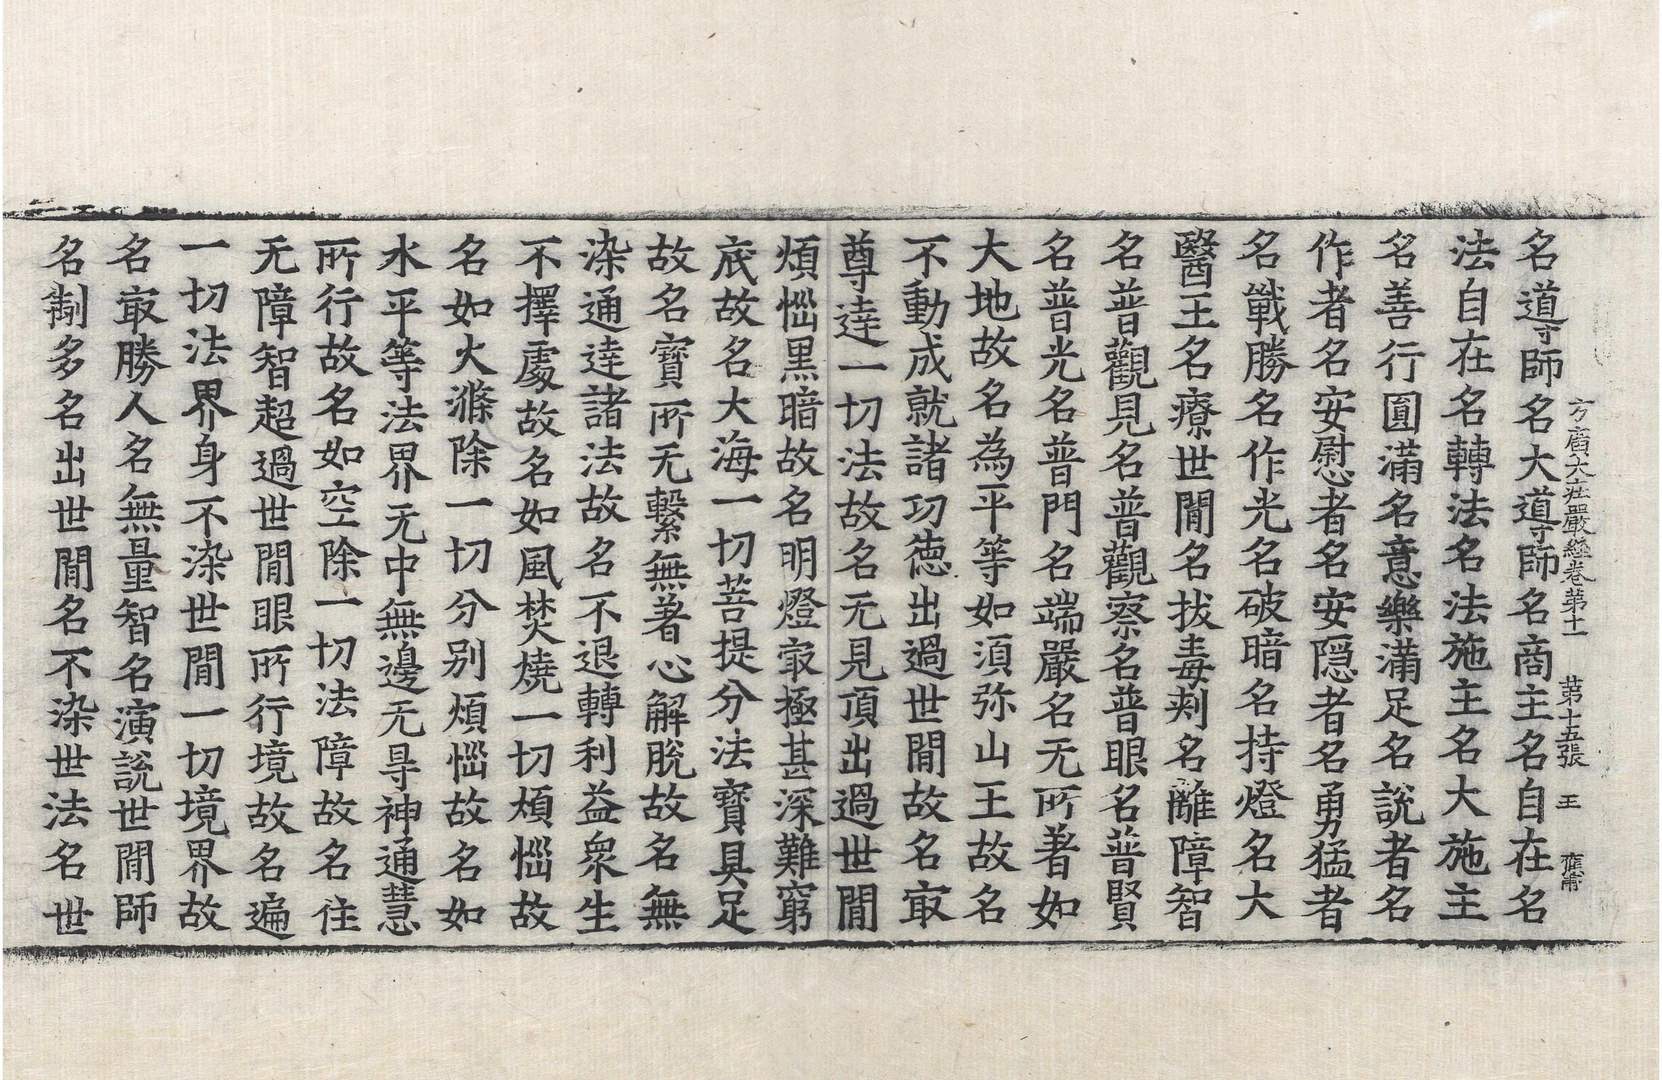 方廣大莊嚴經卷第十一 第十五張 王
名導師名大導師名商主名自在名
法自在名轉法名法施主名大施主
名善行圓滿名意樂滿足名說者名
作者名安慰者名安隱者名勇猛者
名戰勝名作光名破暗名持燈名大
醫王名療世閒名拔毒刾名離障智
名普觀見名普觀察名普眼名普賢
名普光名普門名端嚴名无所著如
大地故名為平等如須弥山王故名
不動成就諸功德出過世閒故名㝡
尊達一切法故名无見頂出過世閒
煩惱黑暗故名明燈㝡極甚深難窮
底故名大海一切菩提分法寶具足
故名寶所无繫無著心解脫故名無
染通達諸法故名不退轉利益衆生
不擇處故名如風焚燒一切煩惱故
名如火滌除一切分別煩惱故名如
水平等法界无中無邊无㝵神通慧
所行故名如空除一切法障故名住
无障智超過世閒眼所行境故名遍
一切法界身不染世閒一切境界故
名㝡勝人名無量智名演說世閒師
名制多名出世閒名不染世法名世